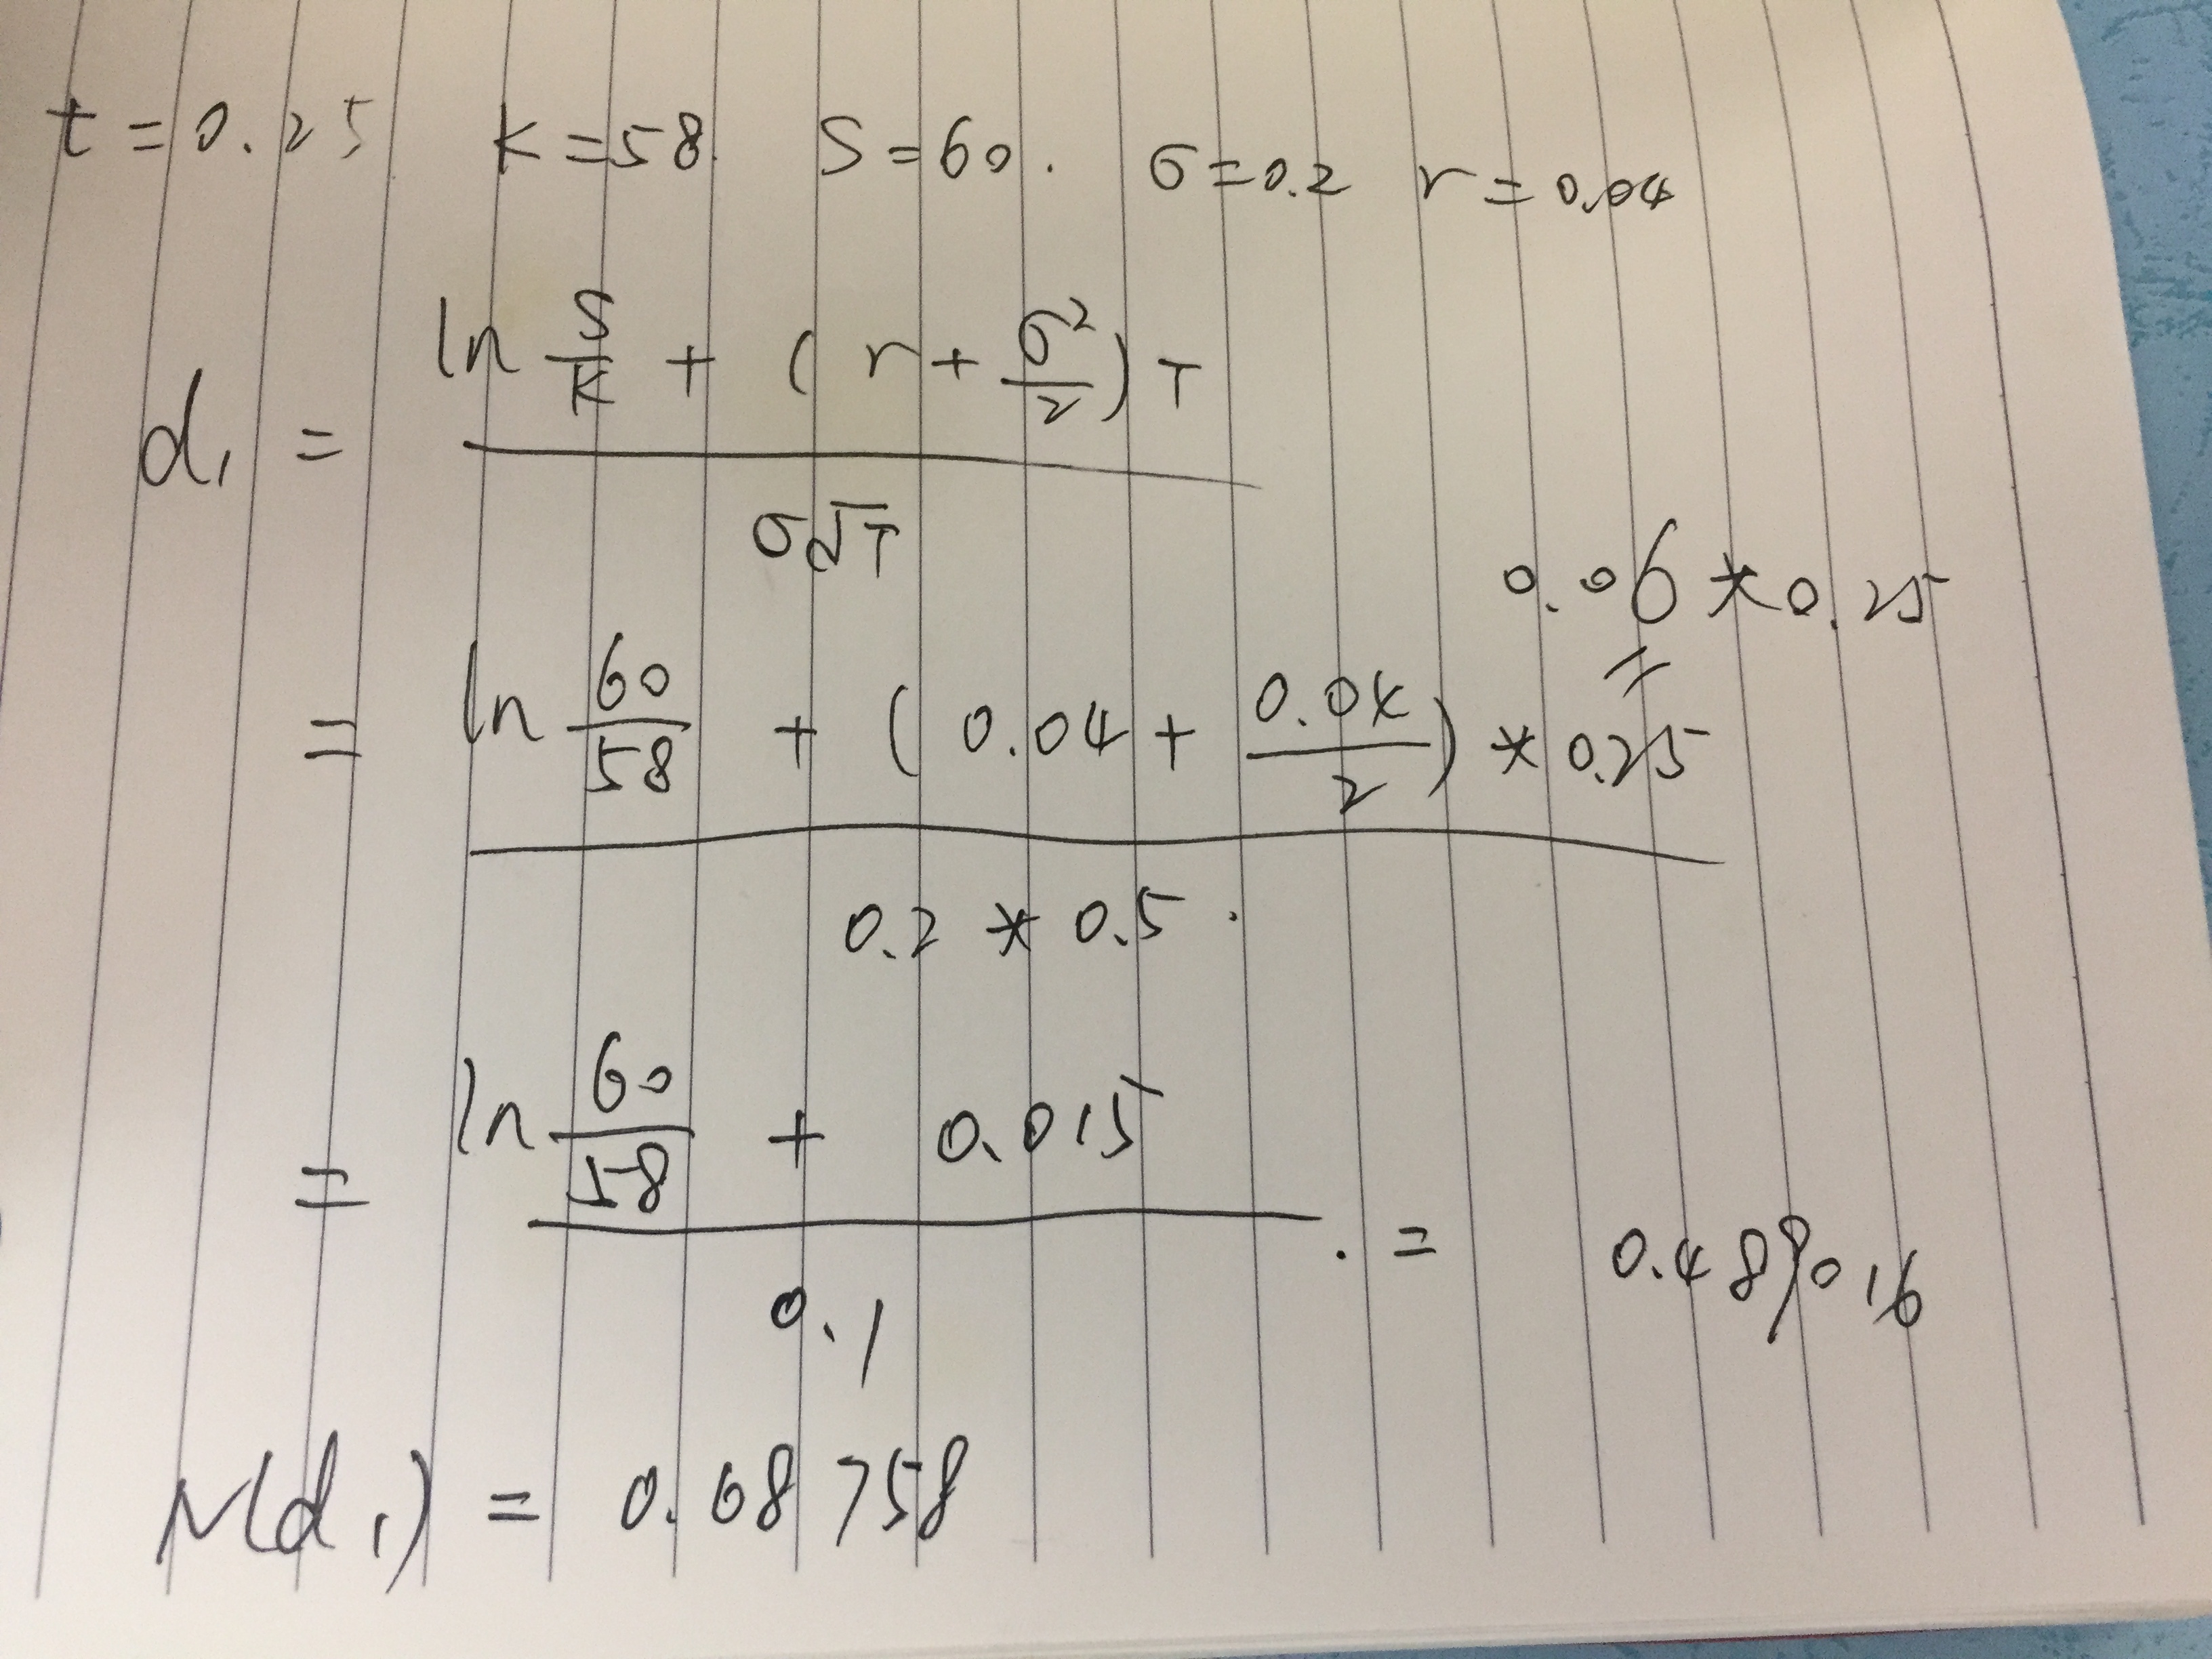 t = 0.25 K = 58. S = 60. σ = 0.2 r = 0.04
d₁ = (ln S/K + (r + σ²/2) T) / (σ√T)
0.06 * 0.25
=
= (ln 60/58 + (0.04 + 0.04/2) * 0.25) / (0.2 * 0.5)
= (ln 60/58 + 0.015) / 0.1 . = 0.489016
N(d₁) = 0.68758